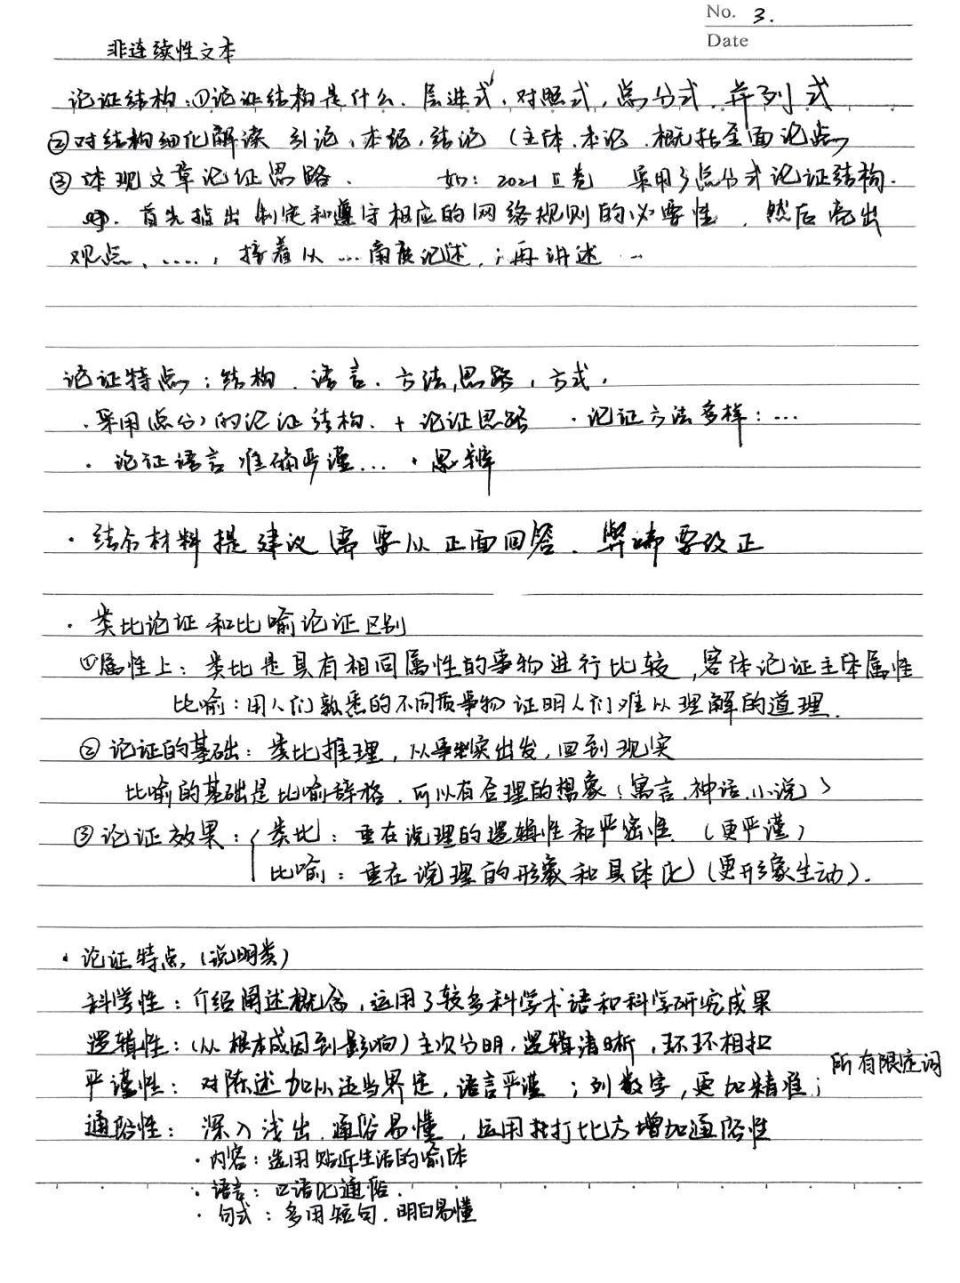 No. 3.
Date
非连续性文本
论证结构:①论证结构是什么、层进式,对照式,总分式,并列式
②对结构细化解读 引论,本论,结论(主体、本论、概括全面论点
③体现文章论证思路. 如:2021 I卷 采用了总分式论证结构.
首先指出制定和遵守相应的网络规则的必要性,然后亮出
观点、....,接着从...角度论述,;再讲述...
论证特点:结构、语言、方法,思路,方式.
·采用(总分)的论证结构.+论证思路 ·论证方法多样:...
·论证语言准确严谨... ·思辨
·结合材料提建议需要从正面回答、弊端要改正
·类比论证和比喻论证区别
①属性上:类比是具有相同属性的事物进行比较,客体论证主体属性
比喻:用人们熟悉的不同质事物证明人们难以理解的道理.
②论证的基础:类比推理,从事实出发,回到现实
比喻的基础是比喻辞格.可以有合理的想象(寓言.神话.小说)
③论证效果:{类比:重在说理的逻辑性和严密性(更严谨)
比喻:重在说理的形象和具体化(更形象生动).
·论证特点(说明类)
科学性:介绍阐述概念,运用了较多科学术语和科学研究成果
逻辑性:(从根本成因到影响)主次分明,逻辑清晰,环环相扣
所有限定词
严谨性:对陈述加以适当界定,语言严谨;列数字,更加精准;
通俗性:深入浅出、通俗易懂,运用打比方增加通俗性
·内容:选用贴近生活的喻体
·语言:口语化通俗.
·句式:多用短句.明白易懂